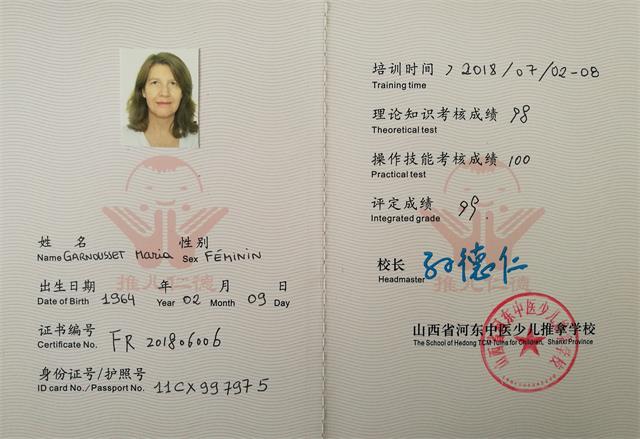 姓 名 GARNOUSSET Maria 性别 FÉMININ
Name Sex
出生日期 1964 年 02 月 09 日
Date of Birth Year Month Day
证书编号 FR 201806006
Certificate No.
身份证号/护照号 11CX997975
ID card No./ Passport No.
推儿仁德
培训时间 2018/07/02-08
Training time
理论知识考核成绩 98
Theoretical test
操作技能考核成绩 100
Practical test
评定成绩 99
Integrated grade
校长
Headmaster
山西省河东中医少儿推拿学校
The School of Hedong TCM-Tuina for Children, Shanxi Province
山西省河东中医少儿推拿学校